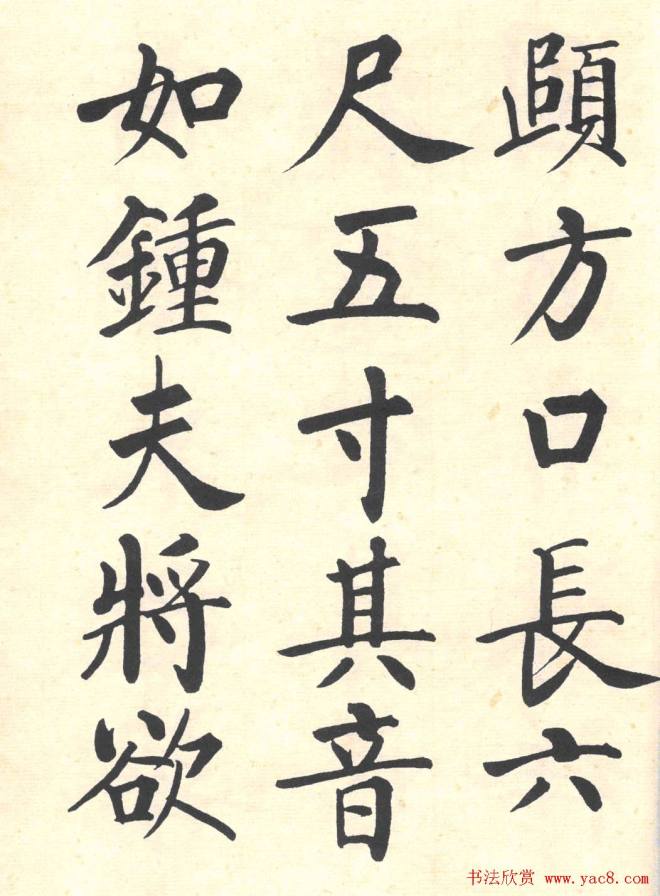 頤方口長六
尺五寸其音
如鍾夫將欲
书法欣赏 www.yac8.com